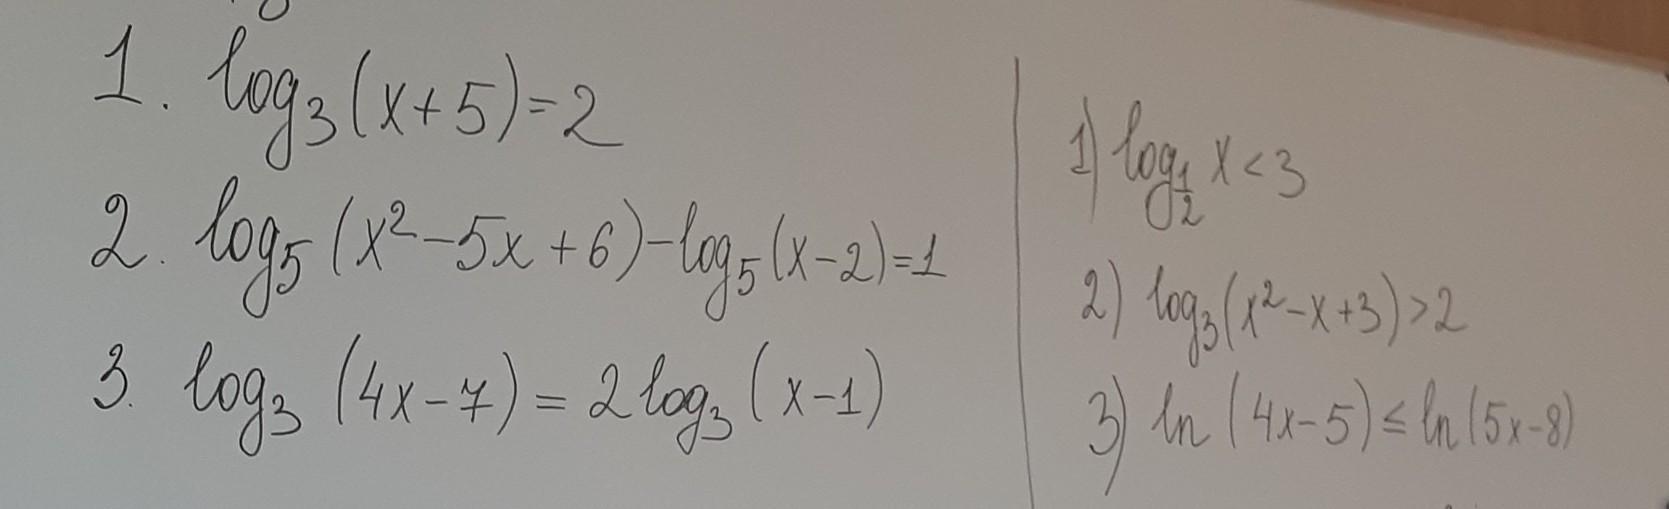 1. log₃(x+5)=2
2. log₅(x²-5x+6)-log₅(x-2)=1
3. log₃(4x-7)=2log₃(x-1)
1) log_{1/2} x<3
2) log₃(x²-x+3)>2
3) ln(4x-5)≤ln(5x-8)